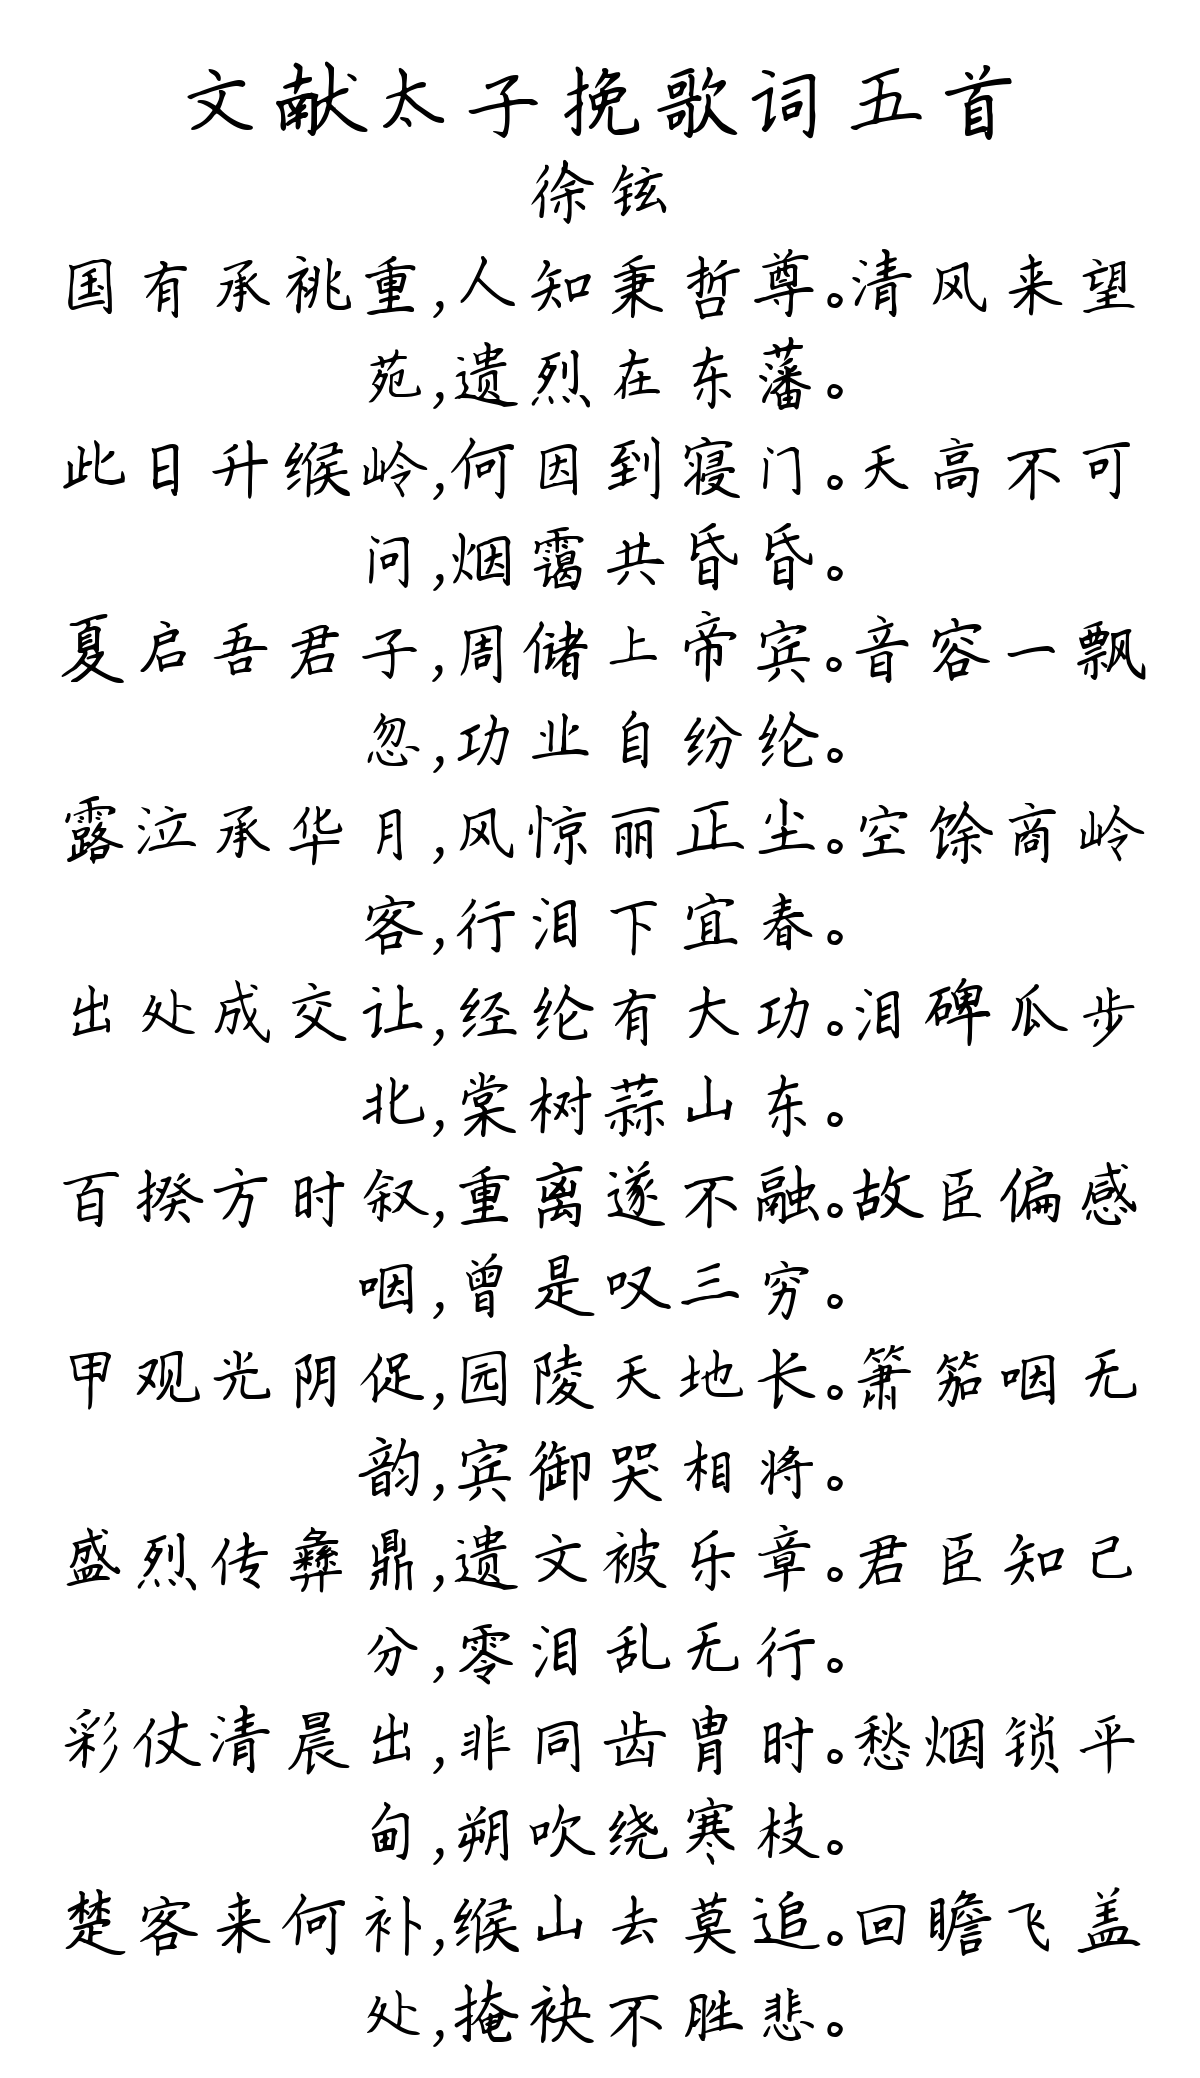 文献太子挽歌词五首
徐铉
国有承祧重,人知秉哲尊。清风来望
苑,遗烈在东藩。
此日升缑岭,何因到寝门。天高不可
问,烟霭共昏昏。
夏启吾君子,周储上帝宾。音容一飘
忽,功业自纷纶。
露泣承华月,风惊丽正尘。空馀商岭
客,行泪下宜春。
出处成交让,经纶有大功。泪碑瓜步
北,棠树蒜山东。
百揆方时叙,重离遂不融。故臣偏感
咽,曾是叹三穷。
甲观光阴促,园陵天地长。箫笳咽无
韵,宾御哭相将。
盛烈传彝鼎,遗文被乐章。君臣知己
分,零泪乱无行。
彩仗清晨出,非同齿胄时。愁烟锁平
甸,朔吹绕寒枝。
楚客来何补,缑山去莫追。回瞻飞盖
处,掩袂不胜悲。